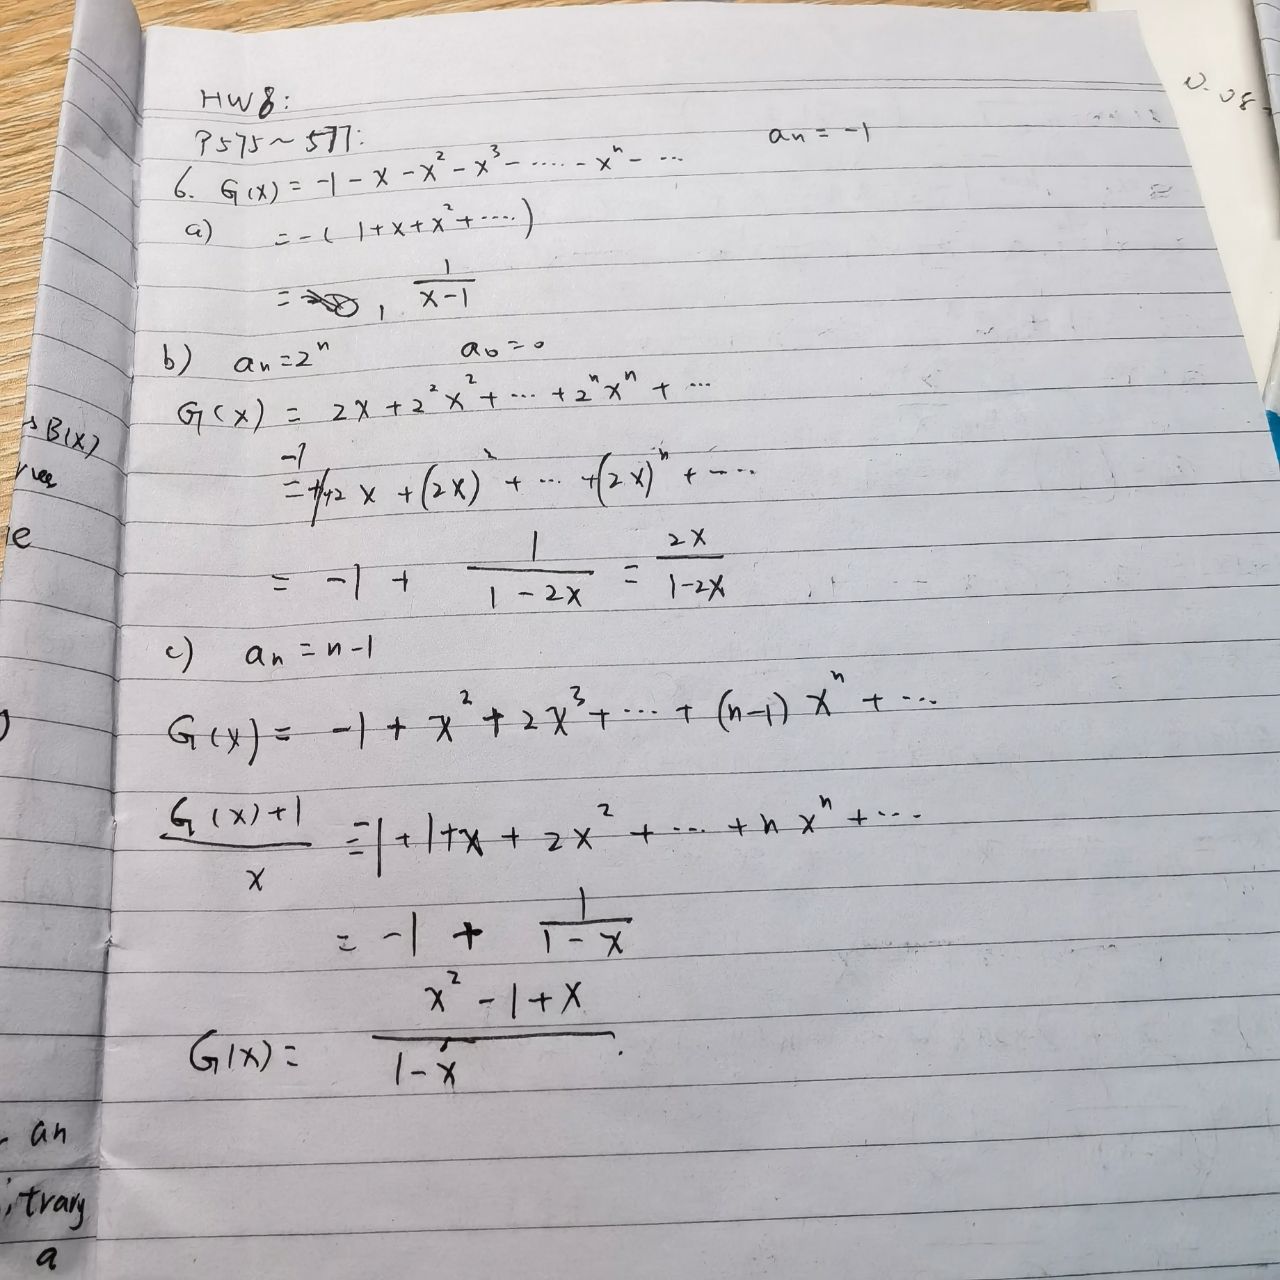 HW8:
P575~577:
6. G(x) = -1 - x - x² - x³ - ····· - xⁿ - ··· aₙ = -1
a) = -( 1+x+x²+····)
= 1/(x-1)
b) aₙ = 2ⁿ a₀ = 0
G(x) = 2x + 2²x² + ··· + 2ⁿxⁿ + ···
= -1 +1+2x + (2x)² + ··· + (2x)ⁿ + ····
= -1 + 1/(1-2x) = 2x/(1-2x)
c) aₙ = n-1
G(x) = -1 + x² + 2x³ + ··· + (n-1) xⁿ + ···
(G(x)+1)/x = -1+1+x + 2x² + ··· + n xⁿ + ···
= -1 + 1/(1-x)
G(x) = (x²-1+x)/(1-x).
B(x)
e
an
trary
a